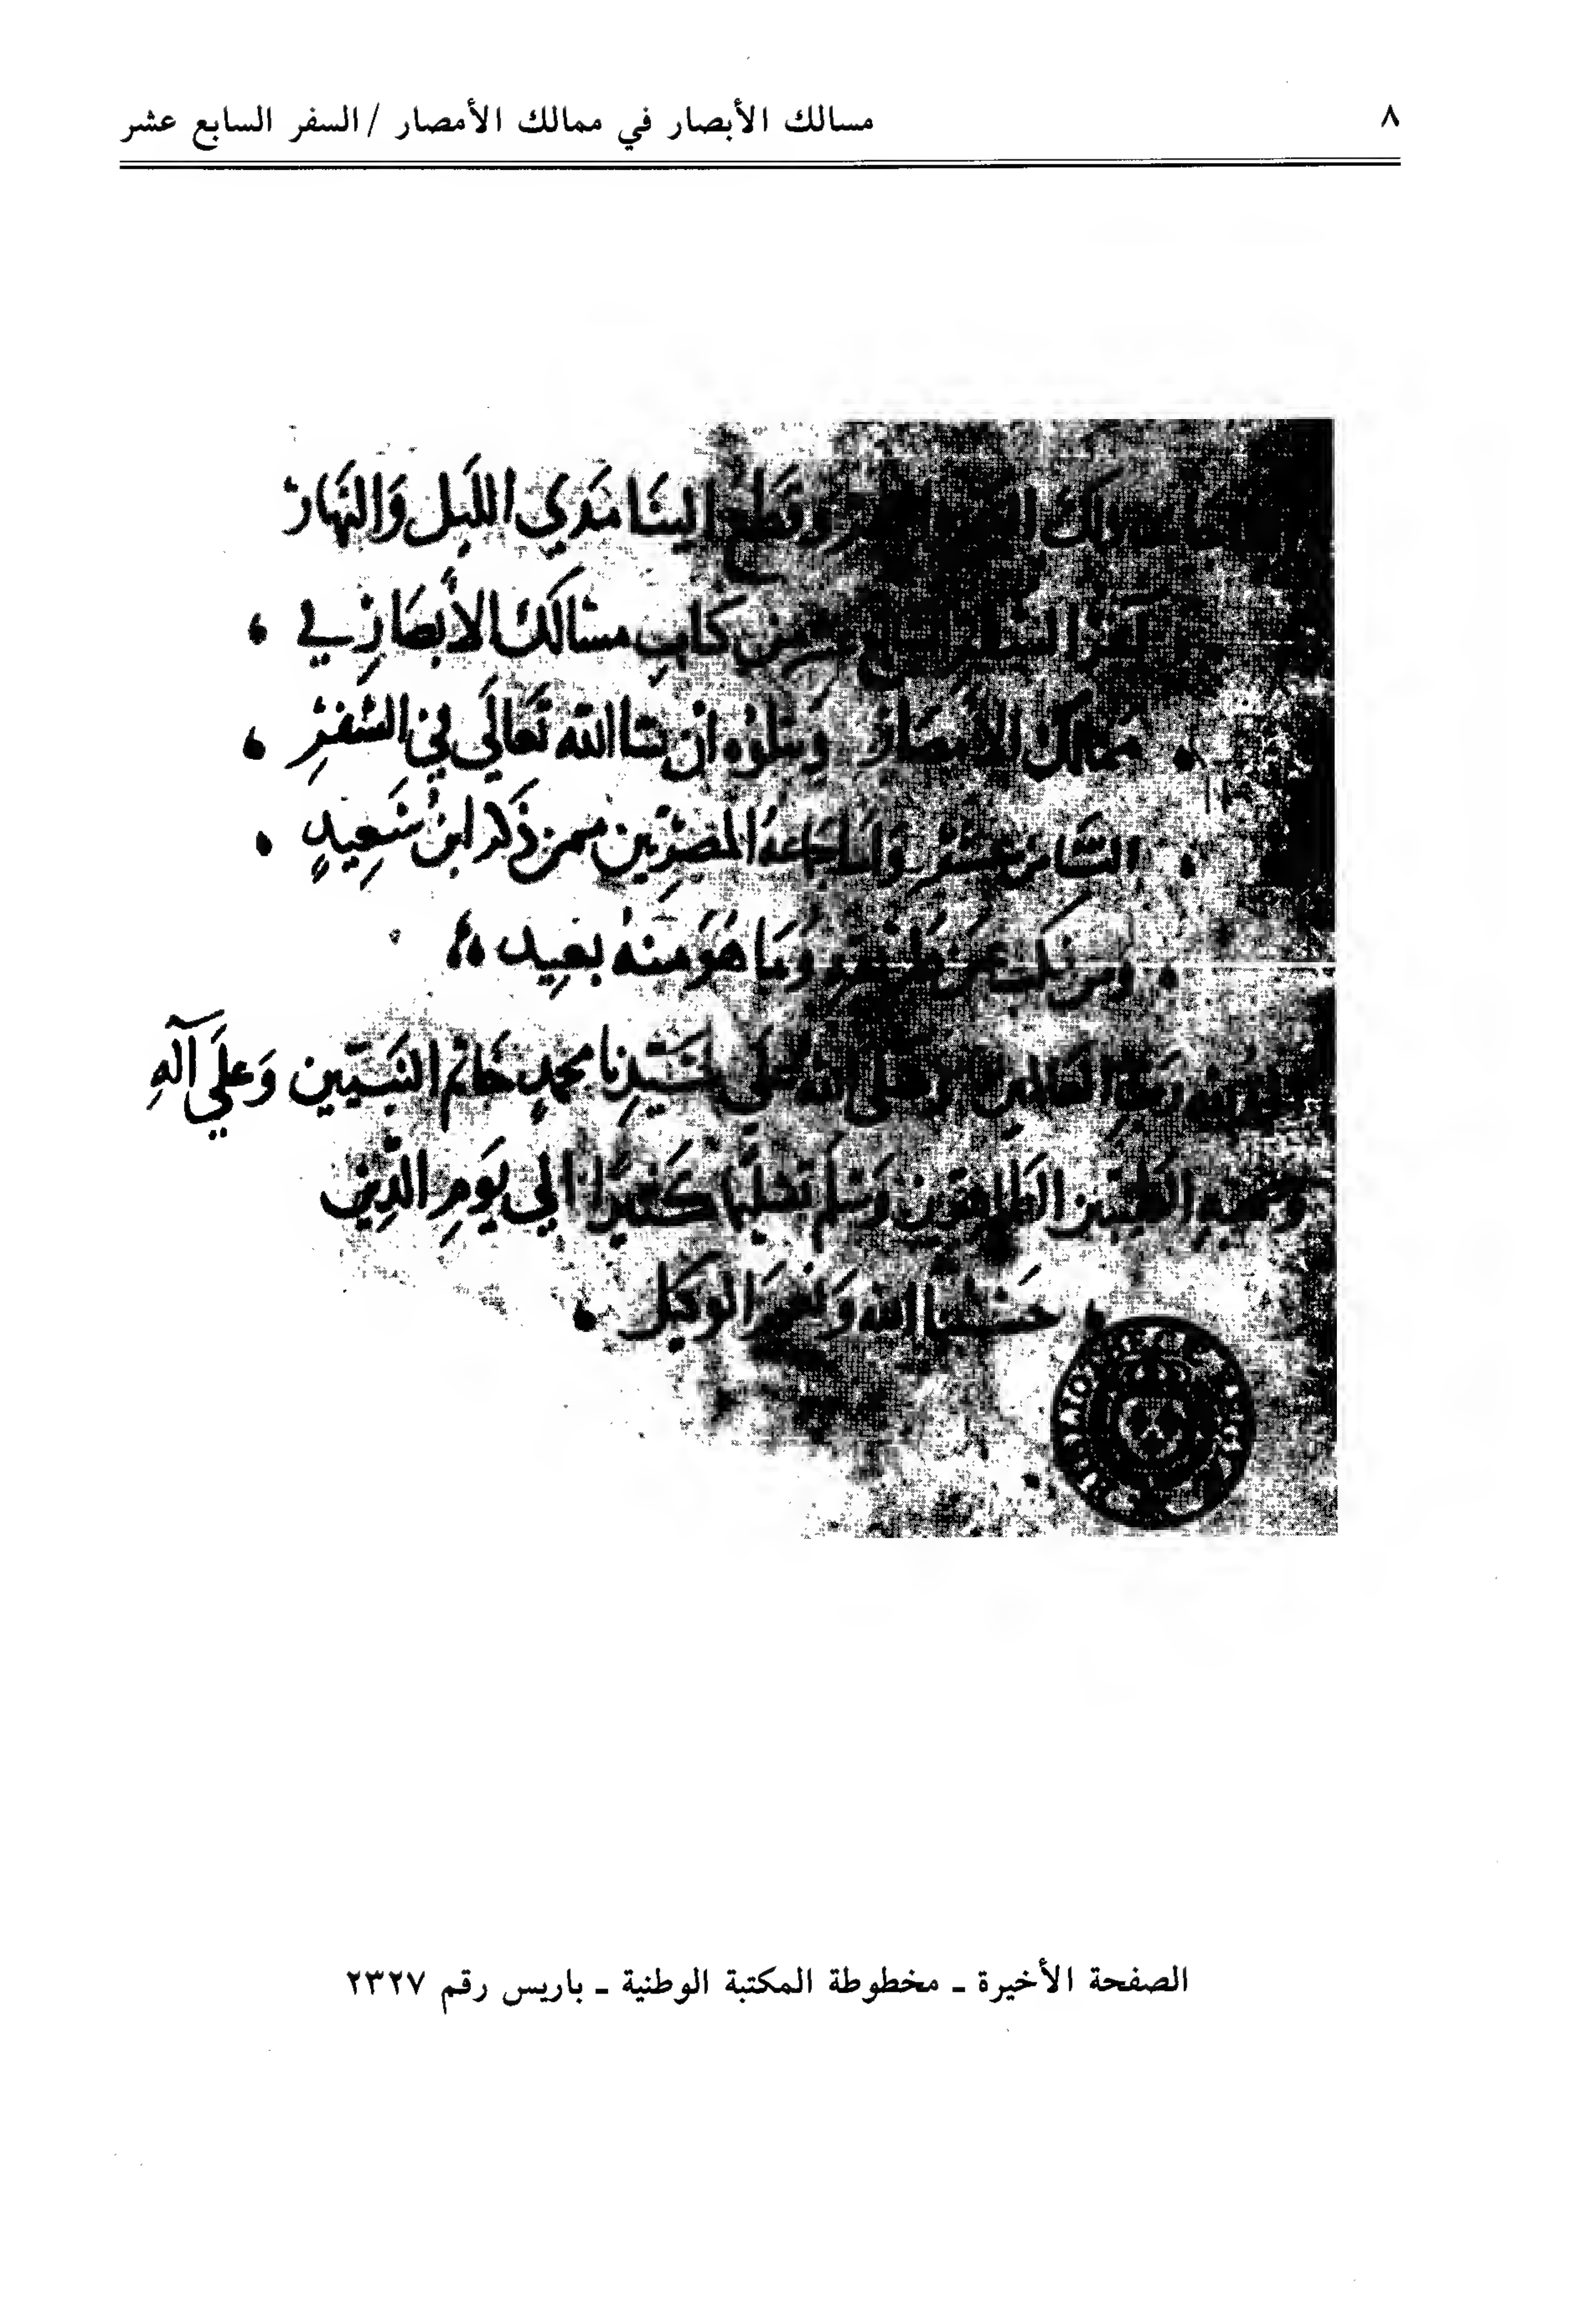 ٨
مسالك الأبصار في ممالك الأمصار / السفر السابع عشر
وقطع إلينا مَدَي الليل وَالنهَار
آخر السفر السابع عشر من كتابِ مسَالك الأبصَارِ في
مَمالك الأمصَار وَيتلوُه ان شا الله تعَالَي في السَّفرِ
الثامن عشر وَاما جماعَهُ المصْرِيّين ممن ذكر ابنُ سَعِيدٍ
وَمَا هوَ منهُ بعيد
الحمد لله ربّ العالمين وصلى الله عَلَي سَيّدِنا محمدٍ خاتم النبَيّين وَعلَي آلهِ
وصَحبهِ الطيبين الطاهرين وَسَلم تسليمًا كَثيرًا إلي يَومِ الدِين
حَسْبنا الله وَنعمَ الوكيل
الصفحة الأخيرة ـ مخطوطة المكتبة الوطنية ـ باريس رقم ٢٣٢٧